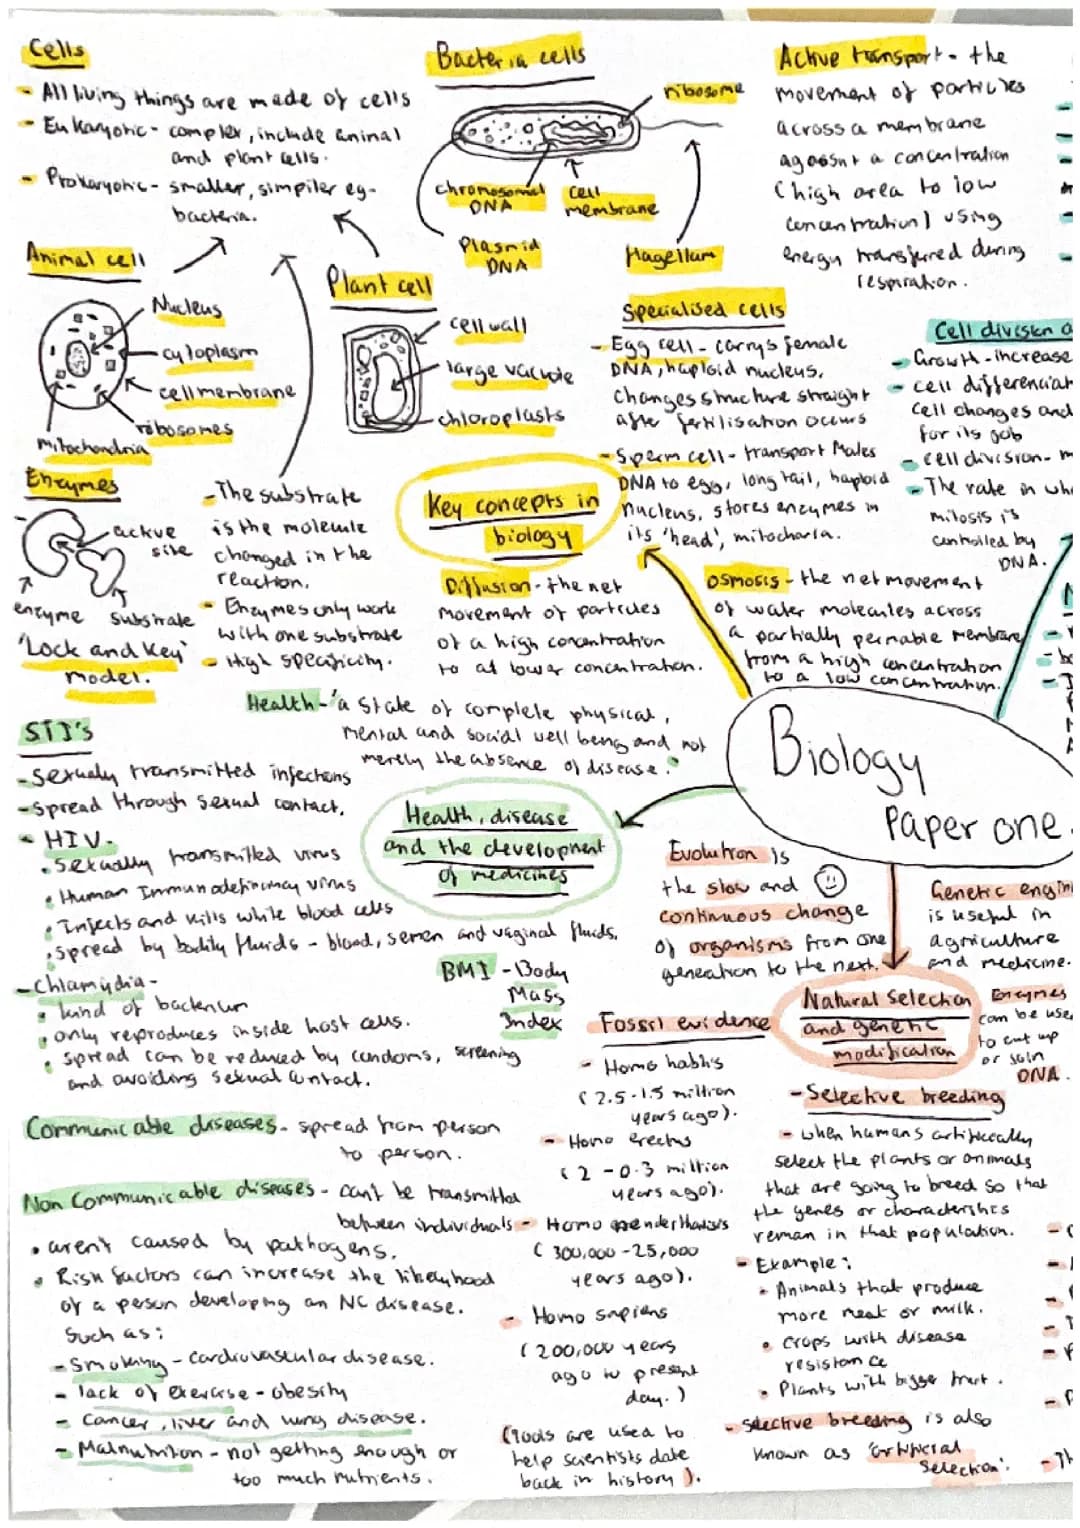 Cells
- All living things are made of cells
- Eukaryotic - complex, include animal
and plant cells.
- Prokaryotic - smaller, simpiler eg-
bacteria.
Animal cell
Nucleus
cytoplasm
cell membrane
ribosomes
mitochondria
Plant cell
cell wall
large vacuole
chloroplasts
Bacteria cells
ribosome
chromosomal
DNA
cell
membrane
Plasmid
DNA
flagellum
Active transport - the
movement of particles
across a membrane
agaisnt a concentration
(high area to low
concentration) using
energy transferred during
respiration.
Specialised cells
- Egg cell - carrys female
DNA, haploid nucleus,
changes structure straight
after fertilisation occurs
- Sperm cell - transport Males
DNA to egg, long tail, haploid
nucleus, stores enzymes in
its 'head', mitocharia.
Cell division a
- Growth - increase
- cell differenciat
cell changes and
for its job
- cell division - m
- The rate in wh
mitosis is
controlled by
DNA.
Enzymes
active
site
enzyme
substrate
'Lock and key'
model.
- The substrate
is the molecule
changed in the
reaction.
- Enzymes only work
with one substrate
- High specificity.
Key concepts in
biology
Diffusion - the net
movement of particles
of a high concentration
to at lower concentration.
Osmosis - the net movement
of water molecules across
a partially permable membrane
from a high concentration
to a low concentration.
Biology
Paper one.
Health - 'a state of complete physical,
mental and social well being and not
merely the absence of disease.'
STI's
- Sexually transmitted infections
- spread through sexual contact.
- HIV -
• sexually transmitted virus
• Human Immunodeficiency virus
• Infects and kills white blood cells
• spread by bodily fluids - blood, semen and vaginal fluids.
- Chlamydia -
• kind of bacterium
• only reproduces inside host cells.
• spread can be reduced by condoms, screening
and avoiding sexual contact.
Health, disease
and the development
of medicines
BMI - Body
Mass
Index
Communicable diseases - spread from person
to person.
Non Communicable diseases - can't be transmitted
between individuals
• aren't caused by pathogens.
• Risk factors can increase the likelyhood
of a person developing an NC disease.
Such as:
- Smoking - cardiovascular disease.
- lack of exercise - obesity
- Cancer, liver and lung disease.
- Malnutrition - not getting enough or
too much nutrients.
Evolution is
the slow and
continuous change
of organisms from one
geneation to the next.
Genetic engin
is useful in
agriculture
and medicine.
Natural selection
and genetic
modification
Enzymes
can be use
to cut up
or join
DNA.
Fossil evidence
- Homo habilis
(2.5-1.5 million
years ago).
- Homo erectus
(2-0.3 million
years ago).
- Homo
(300,000-25,000
years ago).
- Homo sapiens
(200,000 years
ago to present
day.)
(Tools are used to
help scientists date
back in history).
- Selective breeding
- when humans artifically
select the plants or animals
that are going to breed so that
the genes or characteristics
remain in that population.
- Example:
• Animals that produce
more meat or milk.
• crops with disease
resistance
• Plants with bigger fruit.
- selective breeding is also
known as 'artificial
selection'.